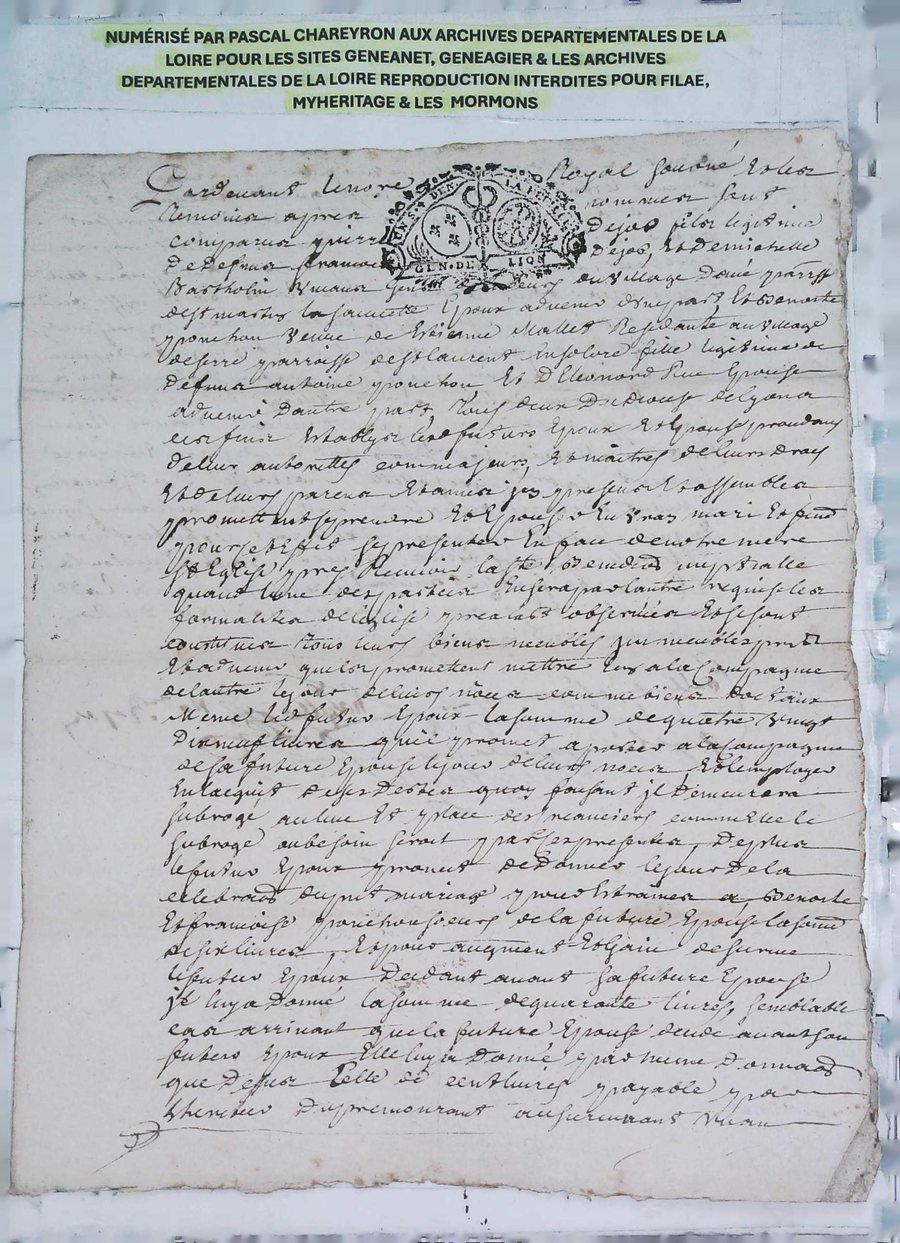 NUMÉRISÉ PAR PASCAL CHAREYRON AUX ARCHIVES DEPARTEMENTALES DE LA
LOIRE POUR LES SITES GENEANET, GENEAGIER & LES ARCHIVES
DEPARTEMENTALES DE LA LOIRE REPRODUCTION INTERDITES POUR FILAE,
MYHERITAGE & LES MORMONS
Pardevant le nore Royal soussigné Et les
temoins apres nommes sont
comparus pierre Dejos fils legitime
de defunt francois Dejos, Et de michelle
GEN. DE LION
Bartholin du village parr
de st martin la sauvetté Epoux advenir d'une part, Et Benoite
ponchon veuve de Etienne Mallet Residante au village
de serre parroisse de st laurent fille legitime de
defunt antoine ponchon Et D'Eleonord Epouse
advenir D'autre part, Tous deux Du diocese de lyon
les futurs Epoux Et Epouse
de leur authorittés comme majeurs, Et maitres de leurs droits
Et de leurs parens Et amis jcy presens Et assembles
promettent se prendre Et Epouser En vray mari Et femme
pour cet Effet se presenter En face de notre mere
ste Eglise pres Recevoir la ste Benedon nuptialle
quand l'une des parties En sera par l'autre requise les
formalites de l'eglise prealabt observées Et se sont
constitues Tous leurs biens meubles jmmeubles prnts
Et advenir qu'ils promettent mettre Ens a la Compagnie
de l'autre le jour de leurs nôces comme biens dotaux
Meme led futur Epoux la somme de quatre vingt
Dix neuf livres qu'il promet aporter a la compagnie
de sa future Epouse le jour de leurs noces Et l'employer
En l'acquit de ses Dettes quoy faisant jl Demeurera
subrogé au lieu Et place des creanciers comme Elle le
subroge au besoin seroit par ces presentes, De plus
le futur Epoux promet de Donner le jour De la
celebraon du pnt mariage pour Etraines a Benoite
Et francoise ponchon soeurs de la future Epouse la some
de six livres, Et pour augment Et gain de survie
le futur Epoux Decedant avant sa future Epouse
jl luy a Donné la somme de quarante livres, semblable
cas arrivant que la future Epouse decede avant son
futur Epoux Elle luy a Donné par meme Donnaon
que Dessus Celle de cent livres payable par
l'heritier Du premourant au survivant un an